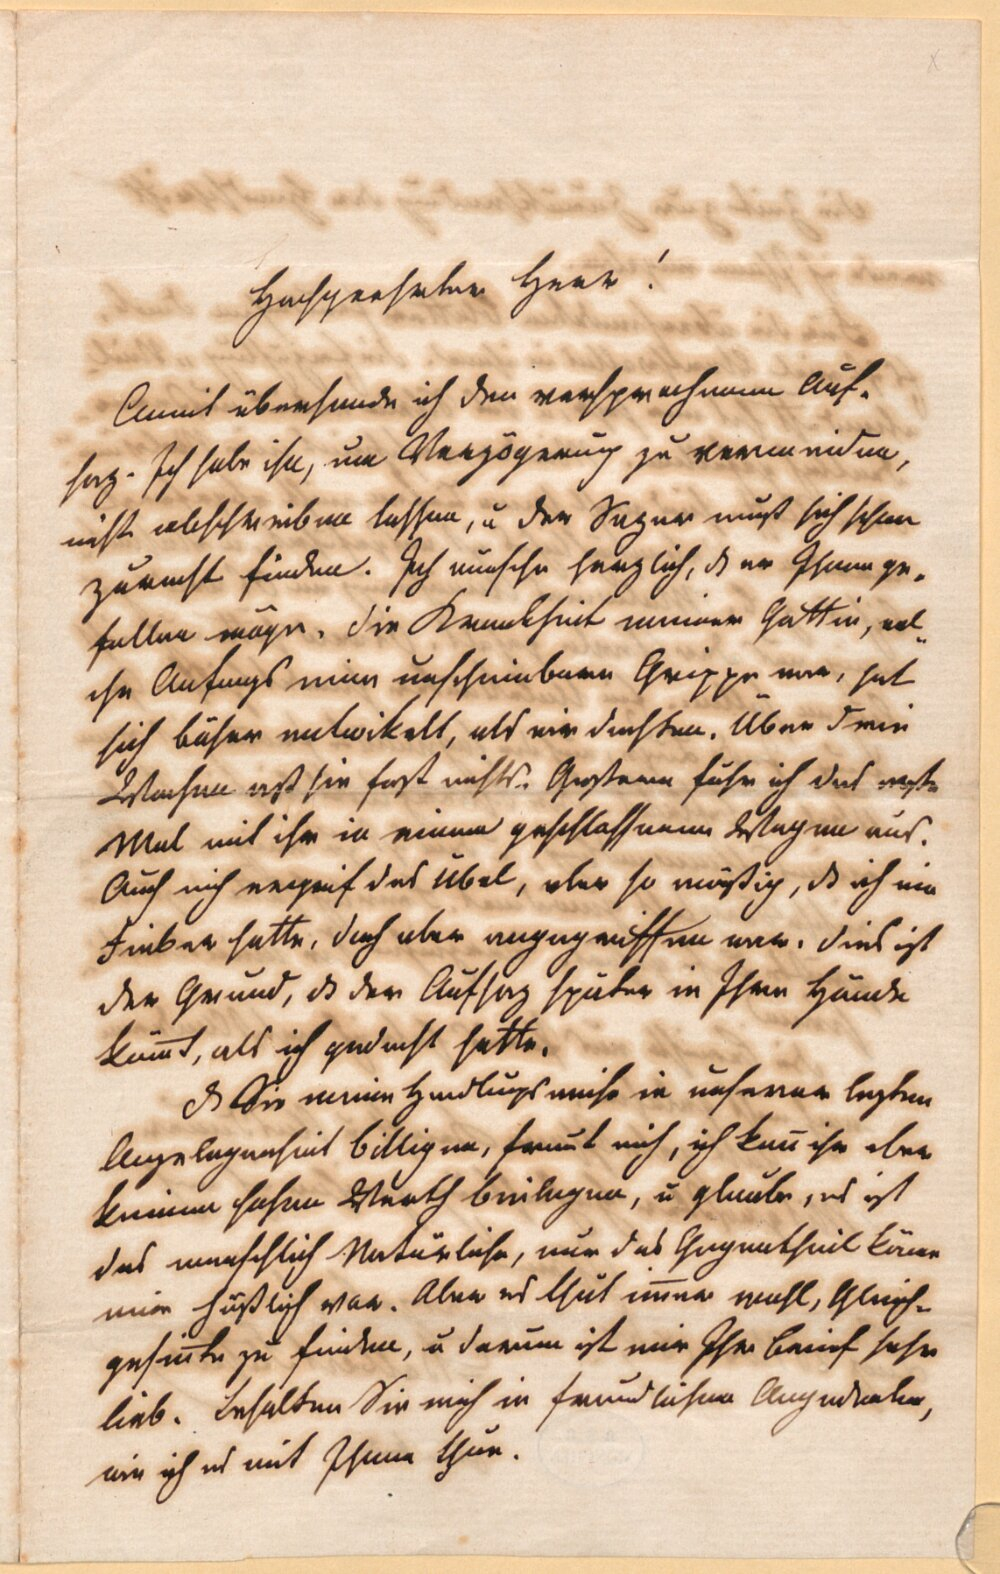 Hochgeehrter Herr!
Anmit übersende ich den versprochenen Auf-
saz. Ich habe ihn, um Verzögerung zu vermeiden,
nicht abschreiben lassen, u der Sezer muß sich schon
zurecht finden. Ich wünsche herzlich, dß er Ihnen ge-
fallen möge. Die Krankheit meiner Gattin, wel-
che Anfangs eine unscheinbare Grippe war, hat
sich böser entwikelt, als wir dachten. Über drei
Wochen aß sie fast nichts. Gestern fuhr ich das erste
Mal mit ihr in einem geschlossenen Wagen aus.
Auch mich ergrif das Übel, aber so mäßig, dß ich nie
Fieber hatte, doch aber angegriffen war. Dies ist
der Grund, dß der Aufsaz später in Ihre Hände
kömt, als ich gedacht hatte.
Dß Sie meine Handlungsweise in unserer lezten
Angelegenheit billigen, freut mich, ich kan ihr aber
keinen hohen Werth beilegen, u glaube, es ist
das menschlich Natürliche, nur das Gegentheil köne
mir häßlich vor. Aber es thut imer wohl, Gleich-
gesinte zu finden, u darum ist mir Ihr Brief sehr
lieb. Behalten Sie mich in freundlichem Angedenken,
wie ich es mit Ihnen thue.